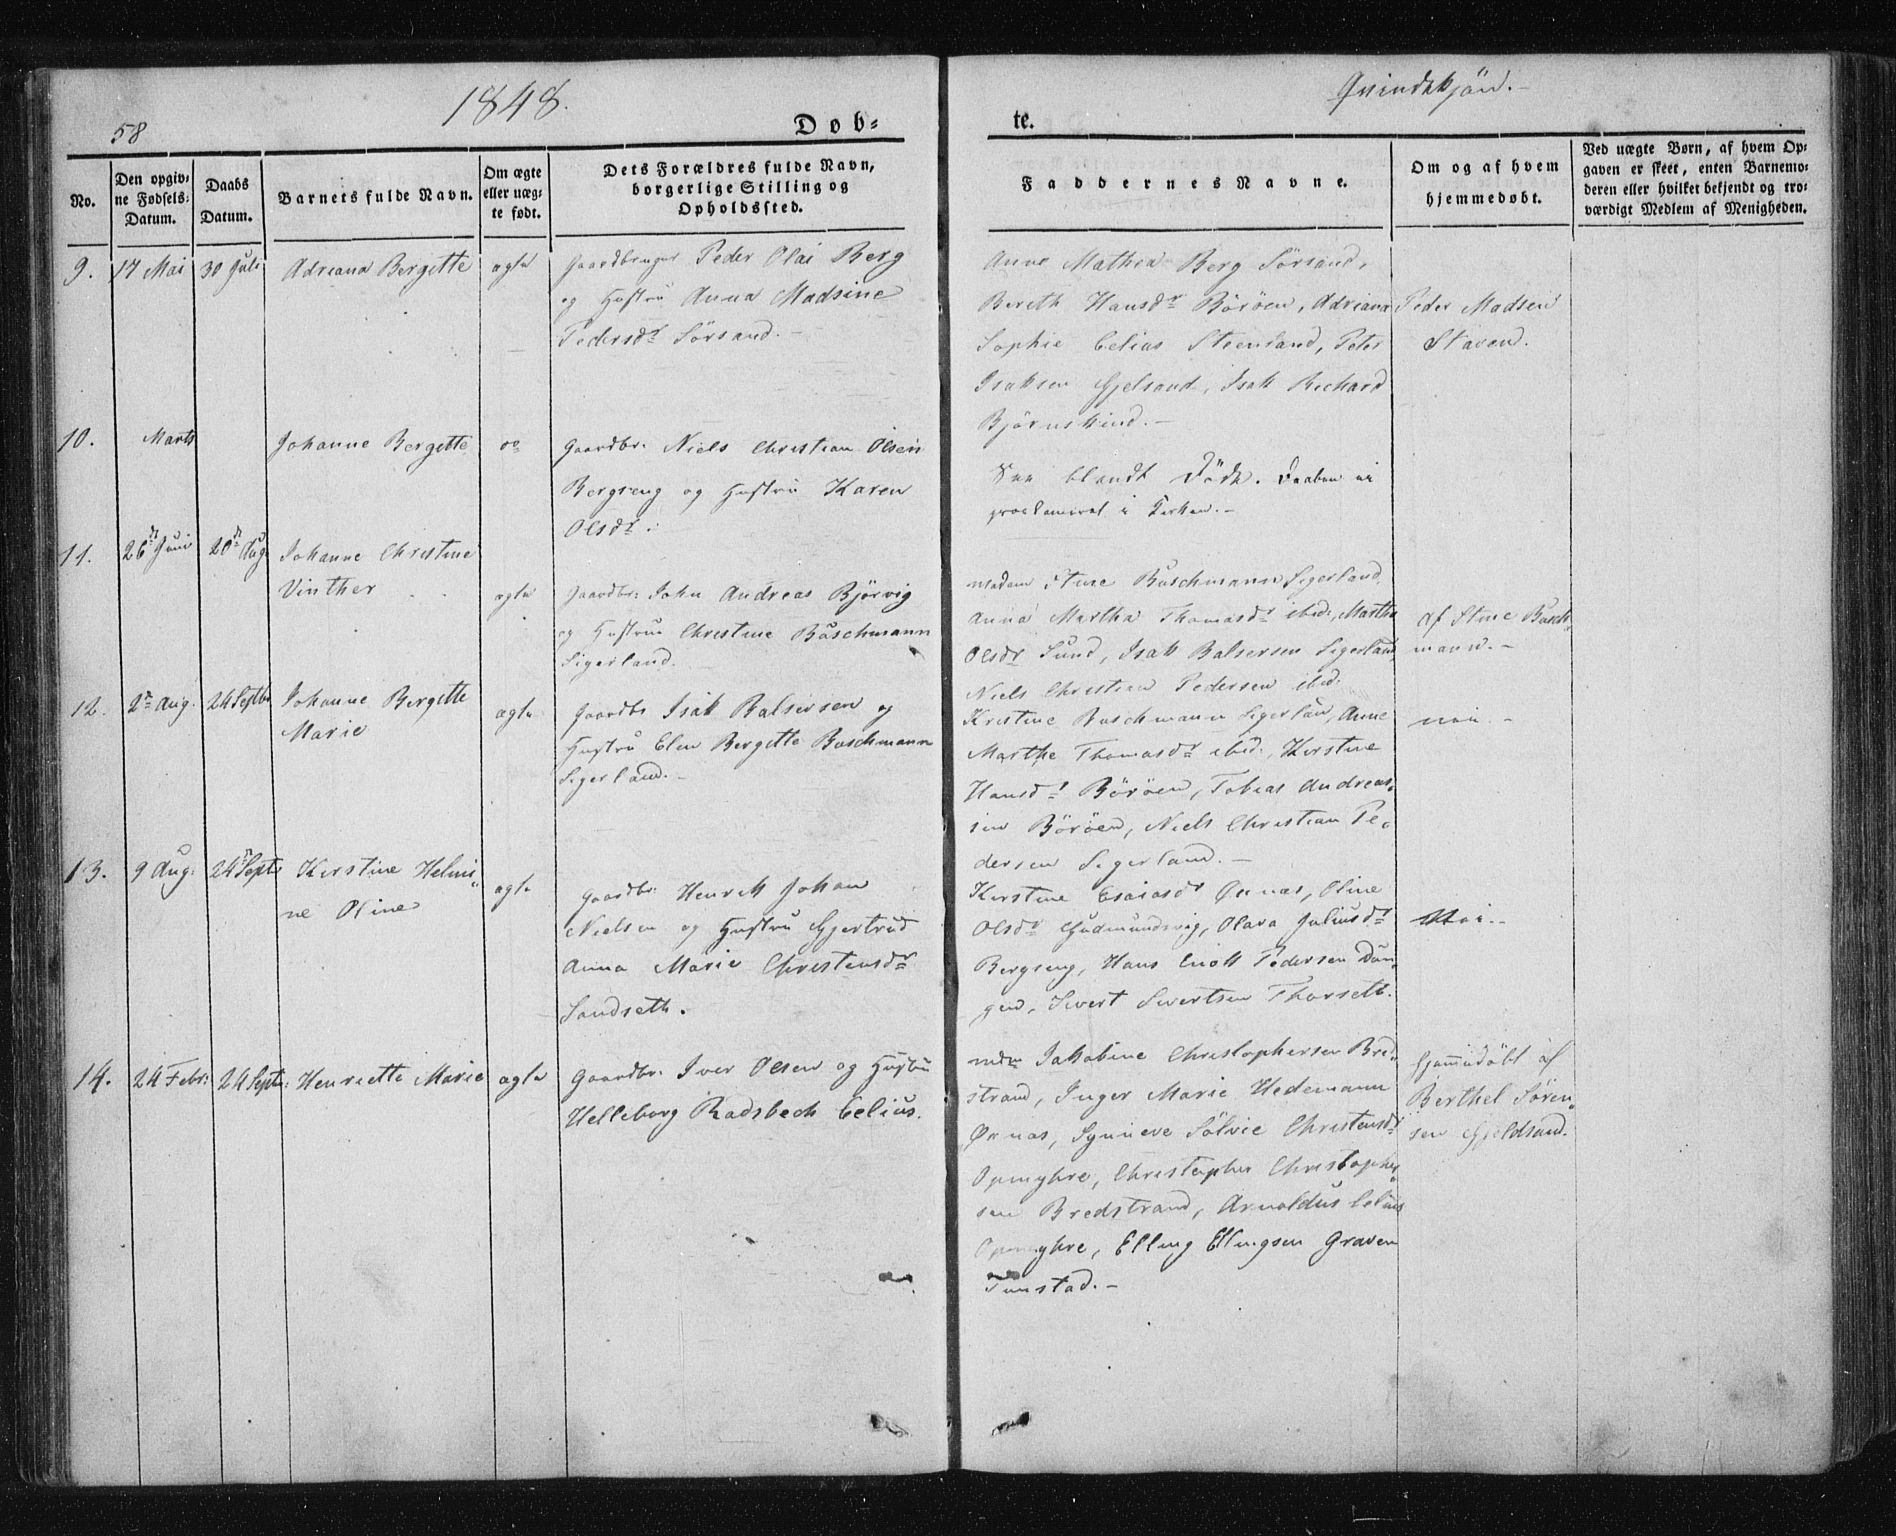 58
1848.
Døb=
te.
Qvindekjön.-
No.
Den opgiv=
ne Fødsels=
Datum.
Daabs
Datum.
Barnets fulde Navn.
Om ægte
eller uæg=
te født.
Dets Forældres fulde Navn,
borgerlige Stilling og
Opholdssted.
Faddernes Navne.
Om og af hvem
hjemmedøbt.
Ved uægte Børn, af hvem Op=
gaven er skeet, enten Barnemo=
deren eller hvilket bekjendt og tro=
værdigt Medlem af Menigheden.
9.
17 Mai
30 Juli
Adriana Bergitte
ægte
Gaardbruger Peder Olai Berg
og Hustru Anna Madsine
Pedersdr Sörsand.-
Anne Mathea Berg Sörsand,
Bereth Hansdr Böröen, Adriana
Sophie Celius Steenland, Peter
Isaksen Gjelsand, Isak Richard
Björnskind.-
Peder Madsen
Staven.
10.
Marts
Johanne Bergitte
do
Gaardbr: Niels Christian Olsen
Bergseng og Hustru Karen
Olsdr.
See blandt Födte. Daaben ei
proclameret i Kirken.-
11.
26de Juni
20de Aug
Johanne Christine
Vinther
ægte
Gaardbr: John Andreas Björvig
og Hustrue Christine Buschmann
Sigerland.
Madam Stine Buschmann Sigerland,
Anna Martha Thomasdr ibid:, Martha
Olsdr Sund, Isak Balsersen Sigerland,
Niels Christian Pedersen ibid:
af Stine Busch=
mann.-
12.
2de Aug.
24 Septbr
Johanne Bergitte
Marie
ægte
Gaardbr Isak Balsersen og
Hustru Elen Bergitte Buschmann
Sigerland.-
Kristine Buschmann Sigerlan, Anne
Marthe Thomasdr ibid:, Kirstine
Hansdr Böröen, Tobias Andreas=
sen Böröen, Niels Christian Pe=
dersen Sigerland.-
nei.-
13.
9 Aug:
24de Septr
Kirstine Helmi=
ne Oline
ægte
Gaardbr: Henrik Johan
Nielsen og Hustru Gjertrud
Anna Marie Christensdr
Sandseth.
Kirstine Esaiasdr Ørnæs, Oline
Olsdr Gudmundsvig, Olava Juliusdr
Bergseng, Hans Enok Pedersen Dün=
gen, Sivert Sivertsen Thorseth.
Nei.-
14.
24 Febr:
24 Septr:
Henriette Marie
ægte
Gaardbr: Iver Olsen og Hustru
Helleborg Rodsbech Celius.
Mdm Jakobine Christophersen Bred=
strand, Inger Marie Hedemann
Ørnæs, Synneve Sölvie Christensdr
Opmyhre, Christopher Christopher=
sen Bredstrand, Arnoldus Celius
Opmyhre, Elling Ellingsen Graven
Tunstad.-
Hjemmedöbt af
Berthel Sören=
sen Gjeldsand.